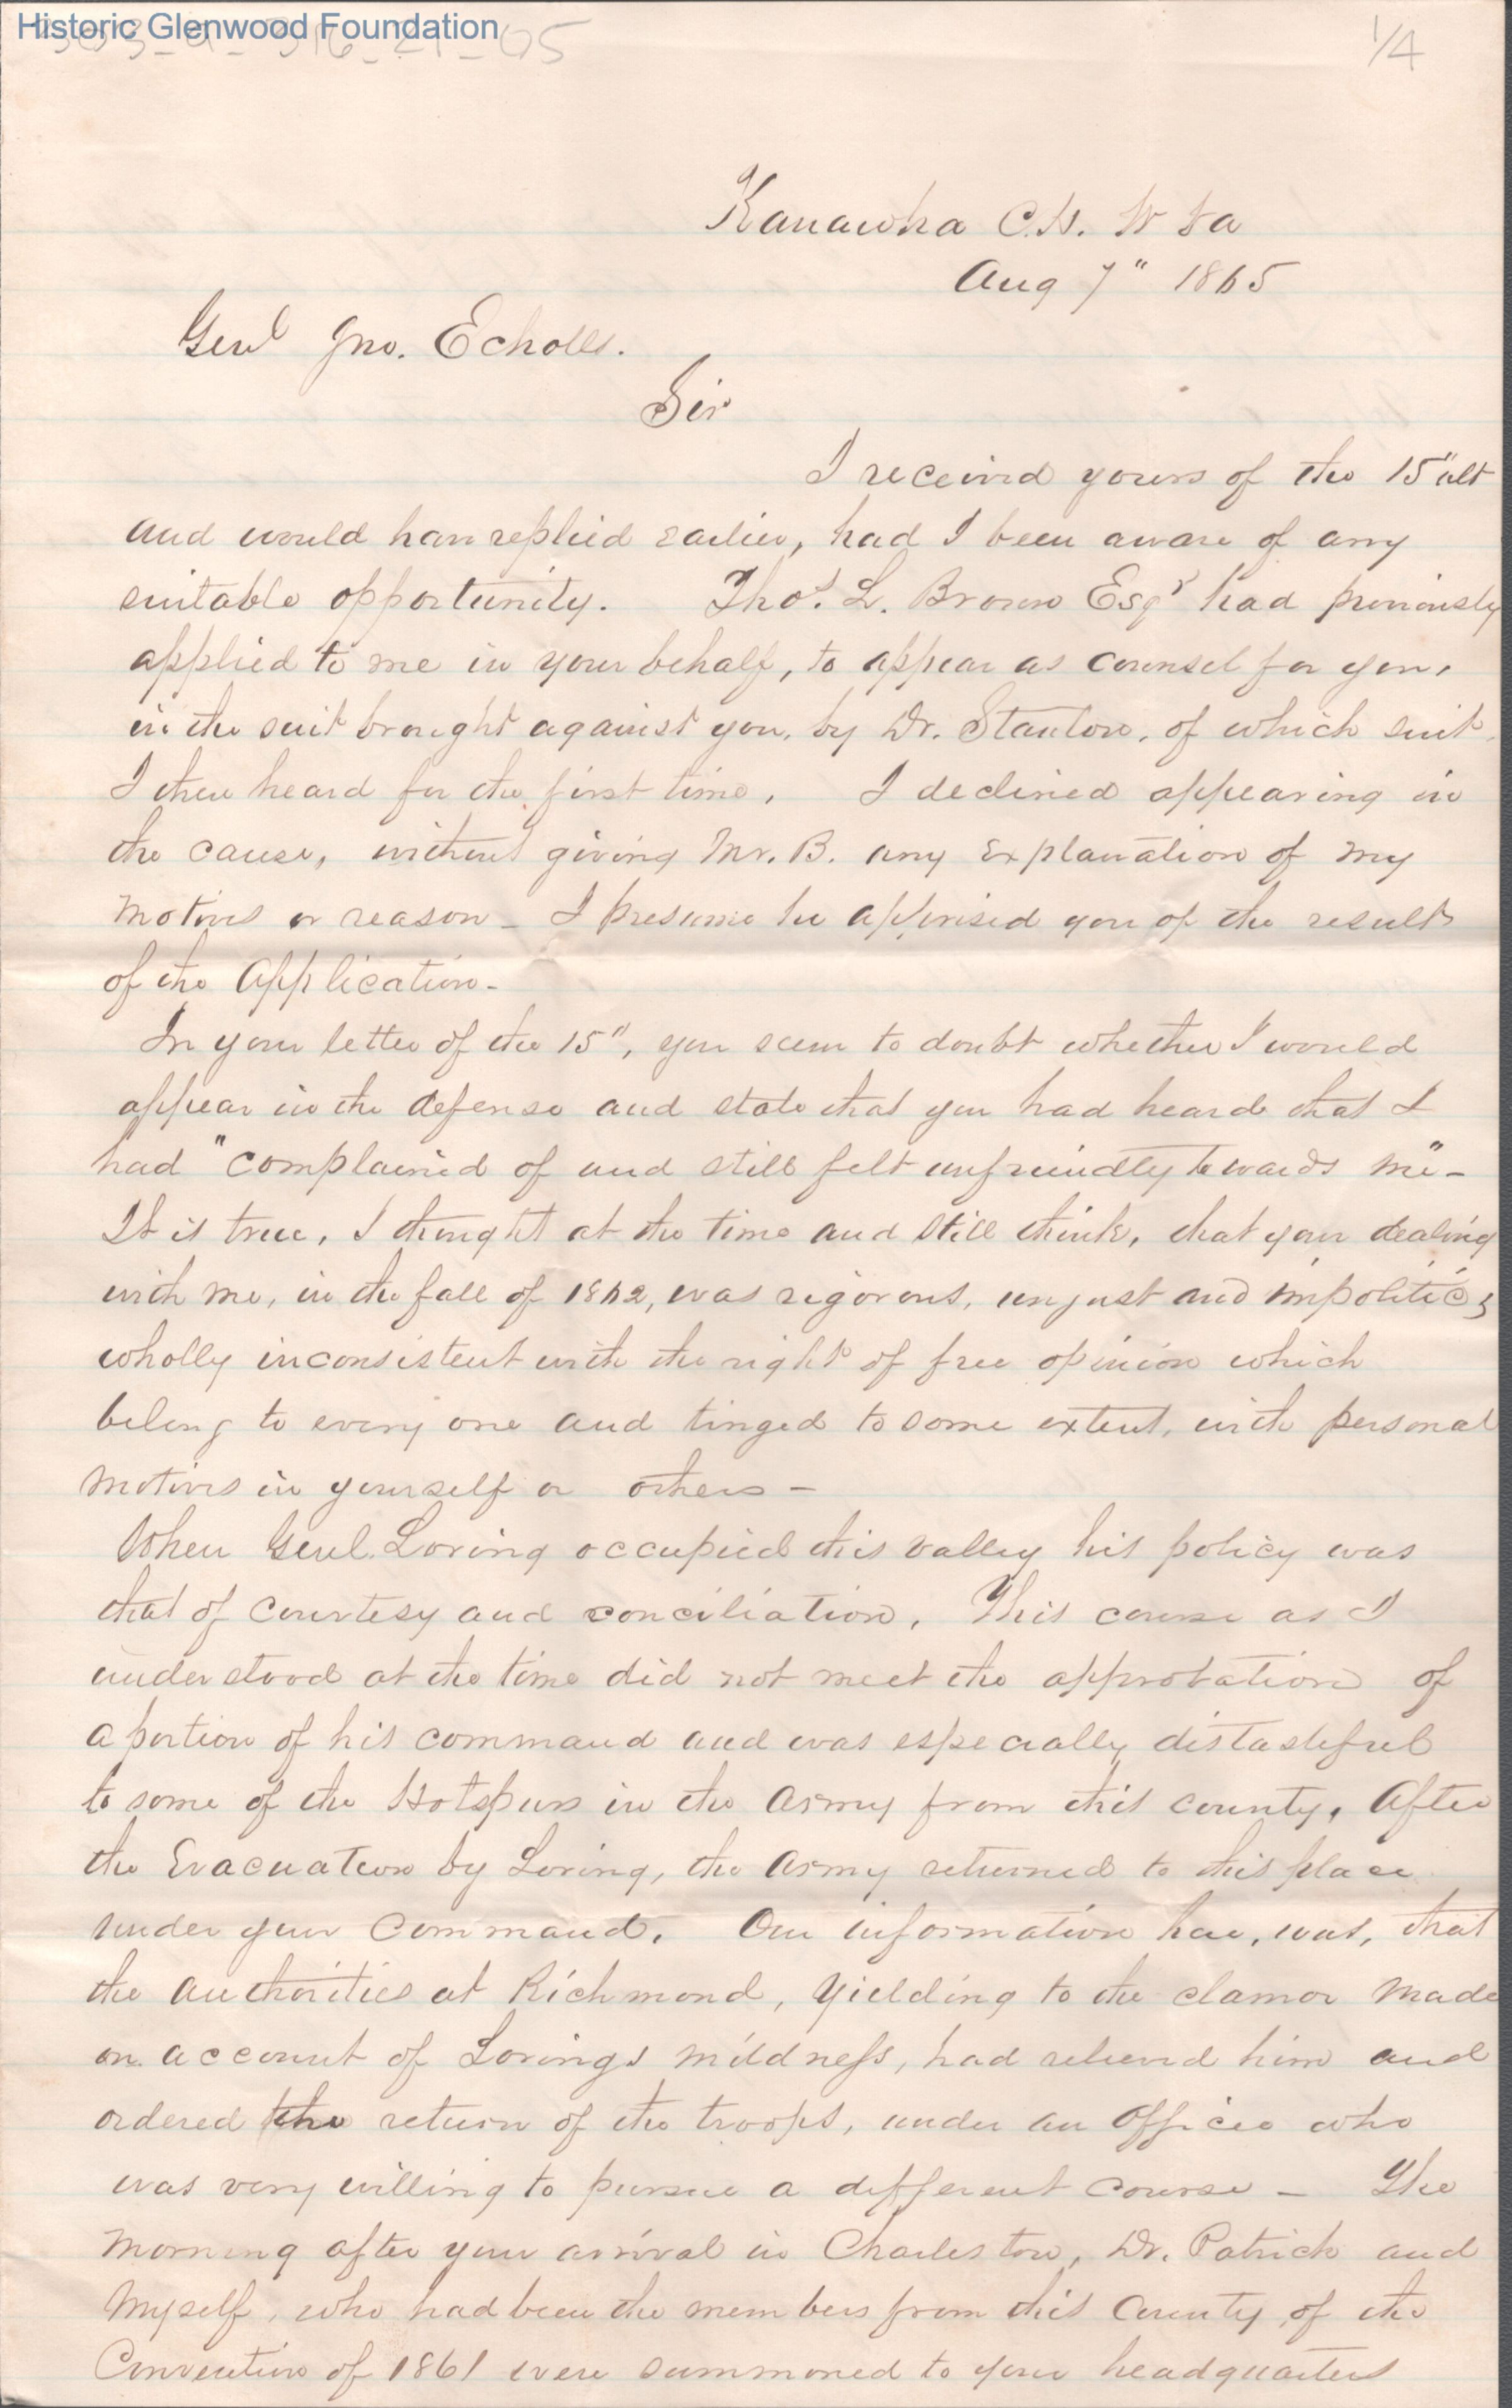 Historic Glenwood Foundation
1/4
Kanawha C.H. W Va
Aug 7" 1865
Genl Jno. Echolls.
Sir
I received yours of the 15" ult
and would have replied earlier, had I been aware of any
suitable opportunity. Thos. L. Brown Esqr had previously
applied to me in your behalf, to appear as counsel for you,
in the suit brought against you, by Dr. Stanton, of which suit
I then heard for the first time, I declined appearing in
the cause, without giving Mr. B. any explanation of my
motives or reason - I presume he apprised you of the result
of the application -
In your letter of the 15", you seem to doubt whether I would
appear in the defense and state that you had heard that I
had "complained of and still felt unfriendly towards me" -
It is true, I thought at the time and still think, that your dealing
with me, in the fall of 1862, was rigorous, unjust and impolitic;
wholly inconsistent with the right of free opinion which
belong to every one and tinged to some extent, with personal
motives in yourself or others -
When Genl. Loring occupied this valley his policy was
that of courtesy and conciliation. This course as I
understood at the time did not meet the approbation of
a portion of his command and was especially distasteful
to some of the Hotspurs in the army from this county. After
the Evacuation by Loring, the army returned to this place
under your command. Our information here, was, that
the authorities at Richmond, yielding to the clamor made
on account of Lorings mildness, had relieved him and
ordered the return of the troops, under an officer who
was very willing to pursue a different course - The
morning after your arrival in Charleston, Dr. Patrick and
myself, who had been the members from this County of the
Convention of 1861 were summoned to your headquarters